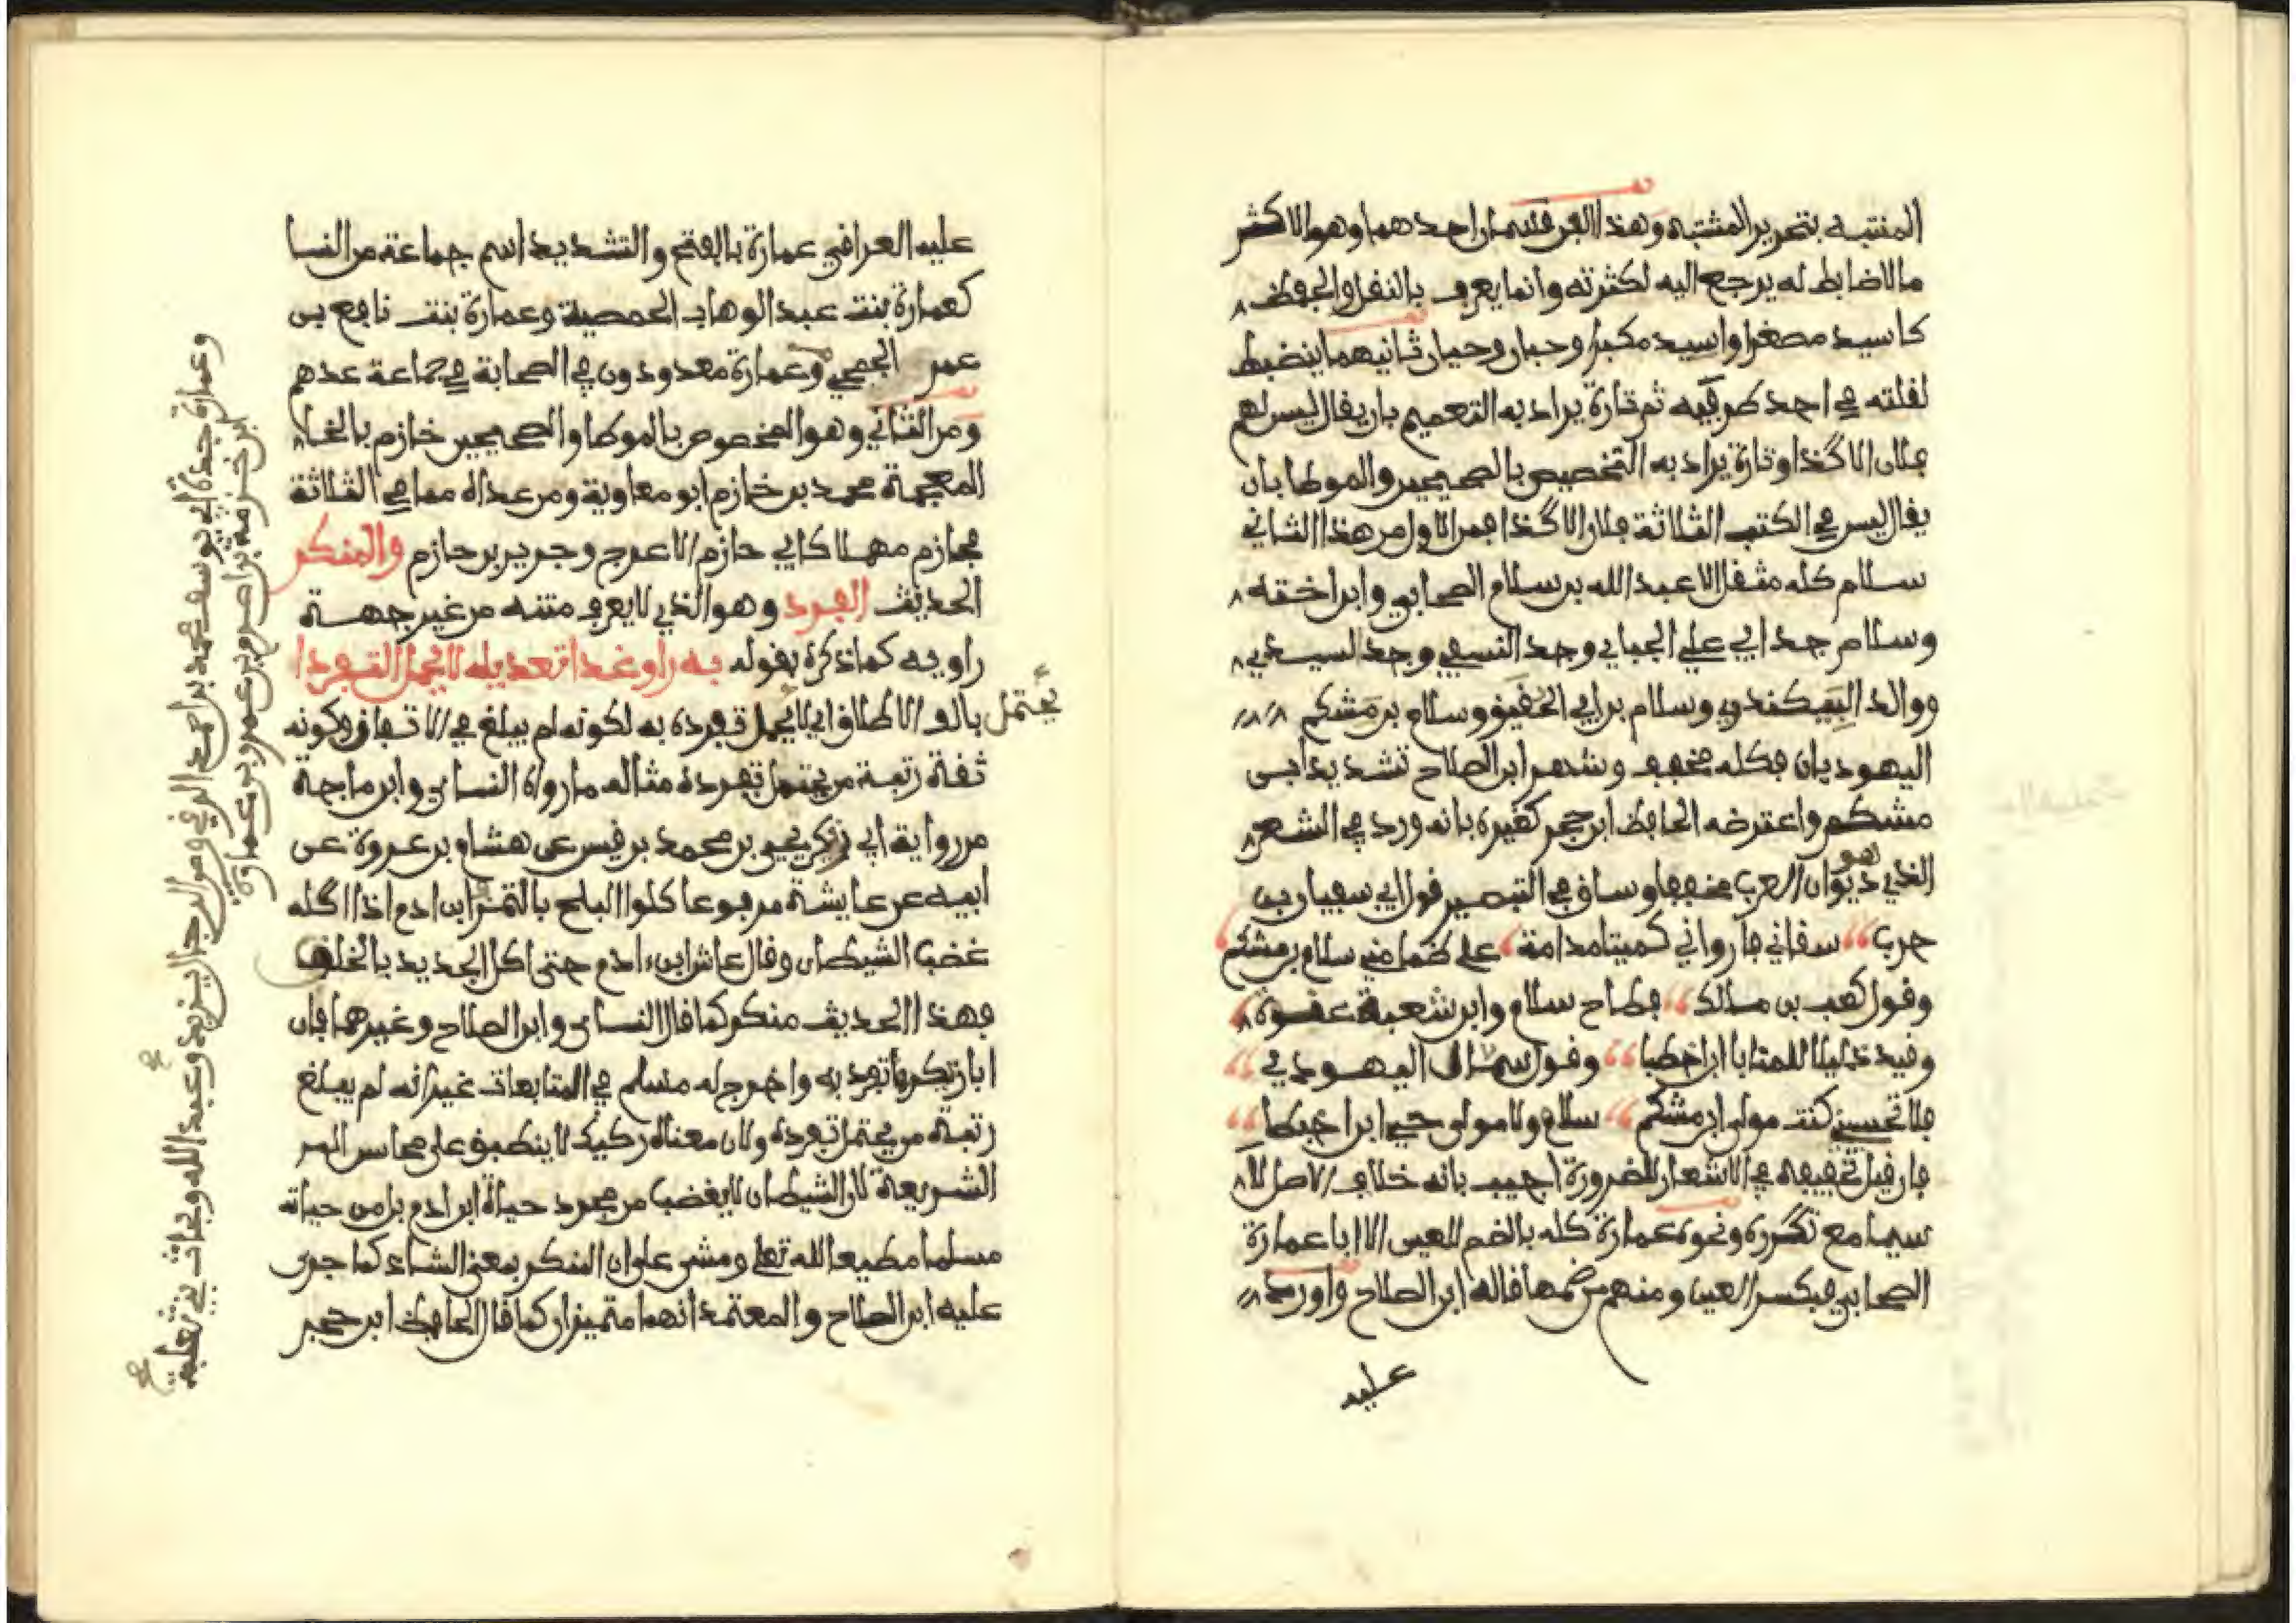 المنتبه بتحرير المشتبه وهذا الفن قسمان احدهما وهو الاكثر
ما لا ضابط له يرجع اليه لكثرته وانما يعرف بالنقل والحفظ
كاسيد مصغرا واسيد مكبرا وحبان وحيان ثانيهما ينضبط
لقلته في احد طرفيه ثم تارة يراد به التعميم بان يقال ليس لهم
فلان الا كذا وتارة يراد به التخصيص بالصحيحين والموطا بان
يقال ليس في الكتب الثلاثة فلان الا كذا فمن الاول من هذا الثاني
سلام كله مثقل الا عبد الله بن سلام الصحابي وابن اخته
وسلام جد ابي علي الجبايي وجد النسفي وجد السيدي
ووالد البيكندي وسلام بن ابي الحقيق وسلام بن مشكم
اليهوديان فكله مخفف وشهر ابن الصلاح تشديد ابن
مشكم واعترضه الحافظ ابن حجر كغيره بانه ورد في الشعر
الذي هو ديوان العرب مخففا وساق في التبصير قول ابي سفيان بن
حرب سقاني فارواني كميتا مدامة على ظمإ مني سلام بن مشكم
وقول كعب بن مالك فطاح سلام وابن شعبة عنوة
وقيد ذليلا للمنايا ابن اخطبا وقول سمال اليهودي
فلا تحسبني كنت مولى ابن مشكم سلام ولا مولى حيي ابن اخطبا
فان قيل تخفيفه في الاشعار للضرورة اجيب بانه خلاف الاصل لا
سيما مع تكرره ونحوه عمارة كله بالضم للعين الا ابا عمارة
الصحابي فبكسر العين ومنهم من ضمها قاله ابن الصلاح واورد
عليه
عليه العراقي عمارة بالفتح والتشديد اسم جماعة من النسا
كعمارة بنت عبد الوهاب الحمصية وعمارة بنت نافع بن
عمر الجمحي وعمارة معدودون في الصحابة في جماعة عدهم
ومن الثاني وهو المخصوص بالموطا والصحيحين خازم بالخا
المعجمة محمد بن خازم ابو معاوية ومن عداه مما في الثلاثة
فحازم مهملا كابي حازم الاعرج وجرير بن حازم والمنكر
الحديث الفرد وهو الذي لا يعرف متنه من غير جهة
راويه كما ذكره بقوله به راو غدا تعديله لا يحمل التفردا
بالف الاطلاق اي لا يحمل تفرده به لكونه لم يبلغ في الاتقان وكونه
يحتمل
ثقة رتبة من يحتمل تفرده مثاله ما رواه النساي وابن ماجة
من رواية ابي زكير يحيى بن محمد بن قيس عن هشام بن عروة عن
ابيه عن عايشة مرفوعا كلوا البلح بالتمر فان ابن ادم اذا اكله
غضب الشيطان وقال عاش ابن ءادم حتى اكل الجديد بالخلق
فهذا الحديث منكر كما قال النساي وابن الصلاح وغيرهما فان
ابا زكير تفرد به واخرج له مسلم في المتابعات غير انه لم يبلغ
رتبة من يحتمل تفرده ولان معناه ركيك لا ينطبق على محاسن
الشريعة لان الشيطان لا يغضب من مجرد حياة ابن ادم بل من حياته
مسلما مطيعا لله تعلى ومشى على ان المنكر بمعنى الشاذ كما جرى
عليه ابن الصلاح والمعتمد انهما متميزان كما قال الحافظ ابن حجر
وعمارة جدة ابي يوسف محمد بن احمد الرقي ومن الرجال يزيد وعبد الله وبحاث بني ثعلبة
ابن خزمة بن اصرم بن عمرو بن عمارة